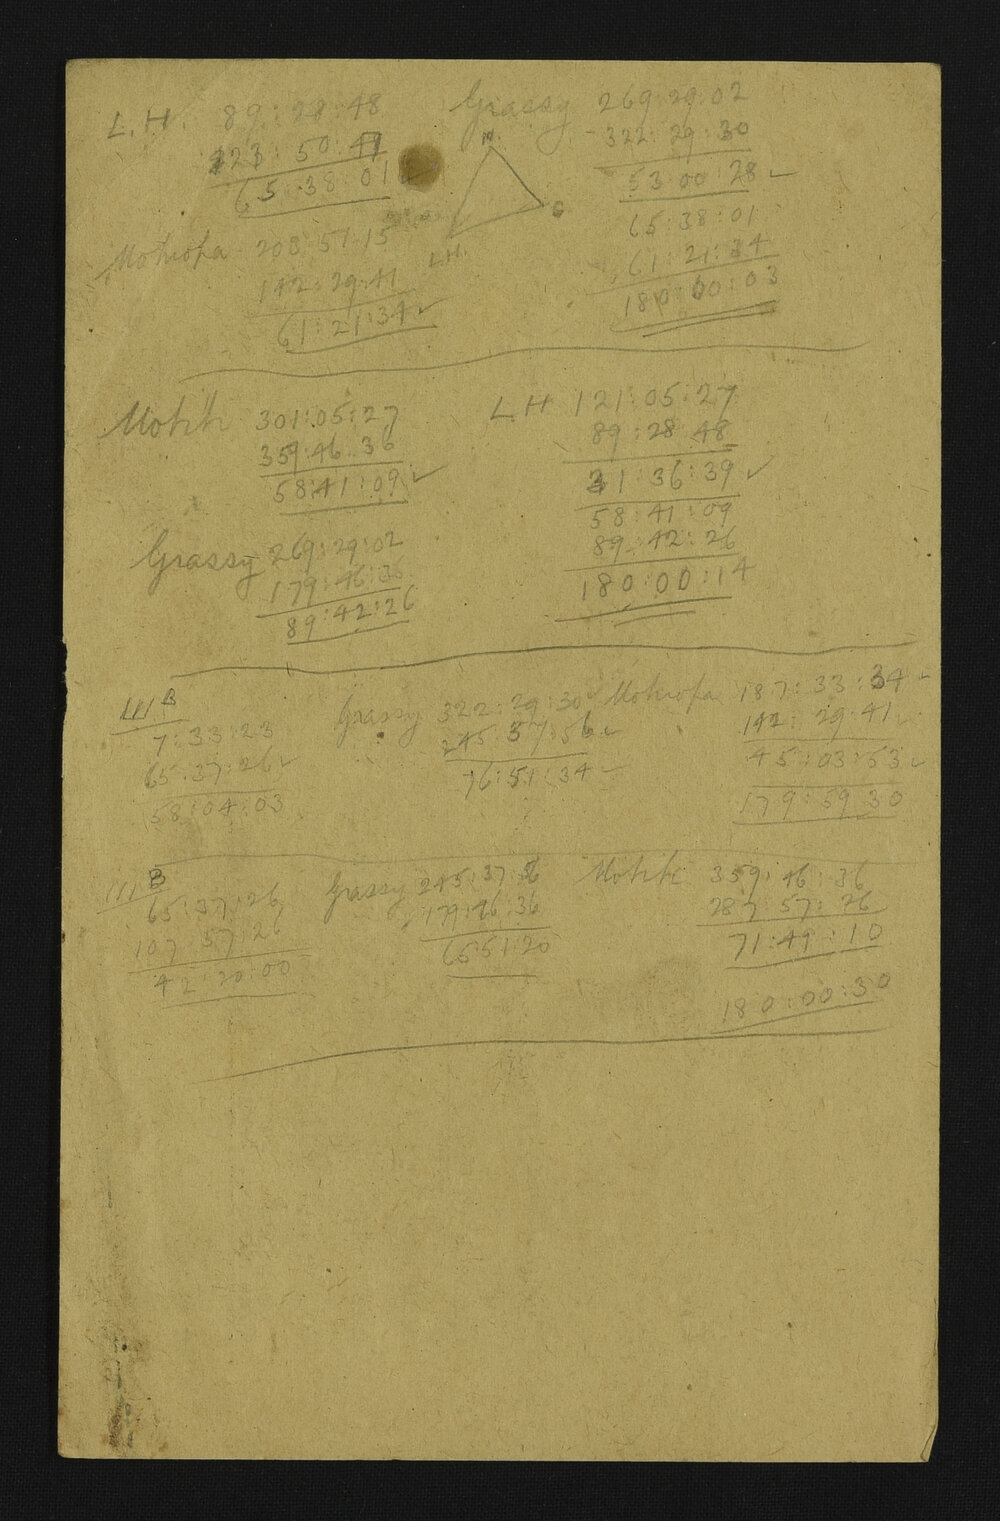 L.H. 89:28:48
23:50:47
65:38:01
Grassy 269:29:02
322:29:30
53:00:28
65:38:01
61:21:34
180:00:03
M.
G
L.H.
208:51:15
142:29:41
61:21:34
301:05:27
359:46:36
58:41:09
LH 121:05:27
89:28:48
31:36:39
58:41:09
89:42:26
180:00:14
Grassy 269:29:02
179:46:36
89:42:26
III B
7:33:23
65:37:26
58:04:03
Grassy 322:29:30
245:37:56
76:51:34
187:33:34
142:29:41
45:03:53
179:59:30
III B
65:37:26
107:57:26
42:20:00
Grassy 245:37:56
179:46:36
65:51:20
359:46:36
287:57:26
71:49:10
180:00:30